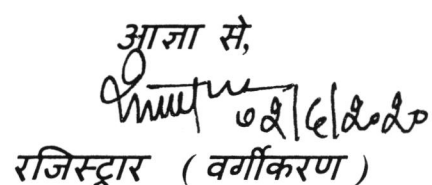 आज्ञा से,
२०२०
रजिस्ट्रार ( वर्गीकरण )